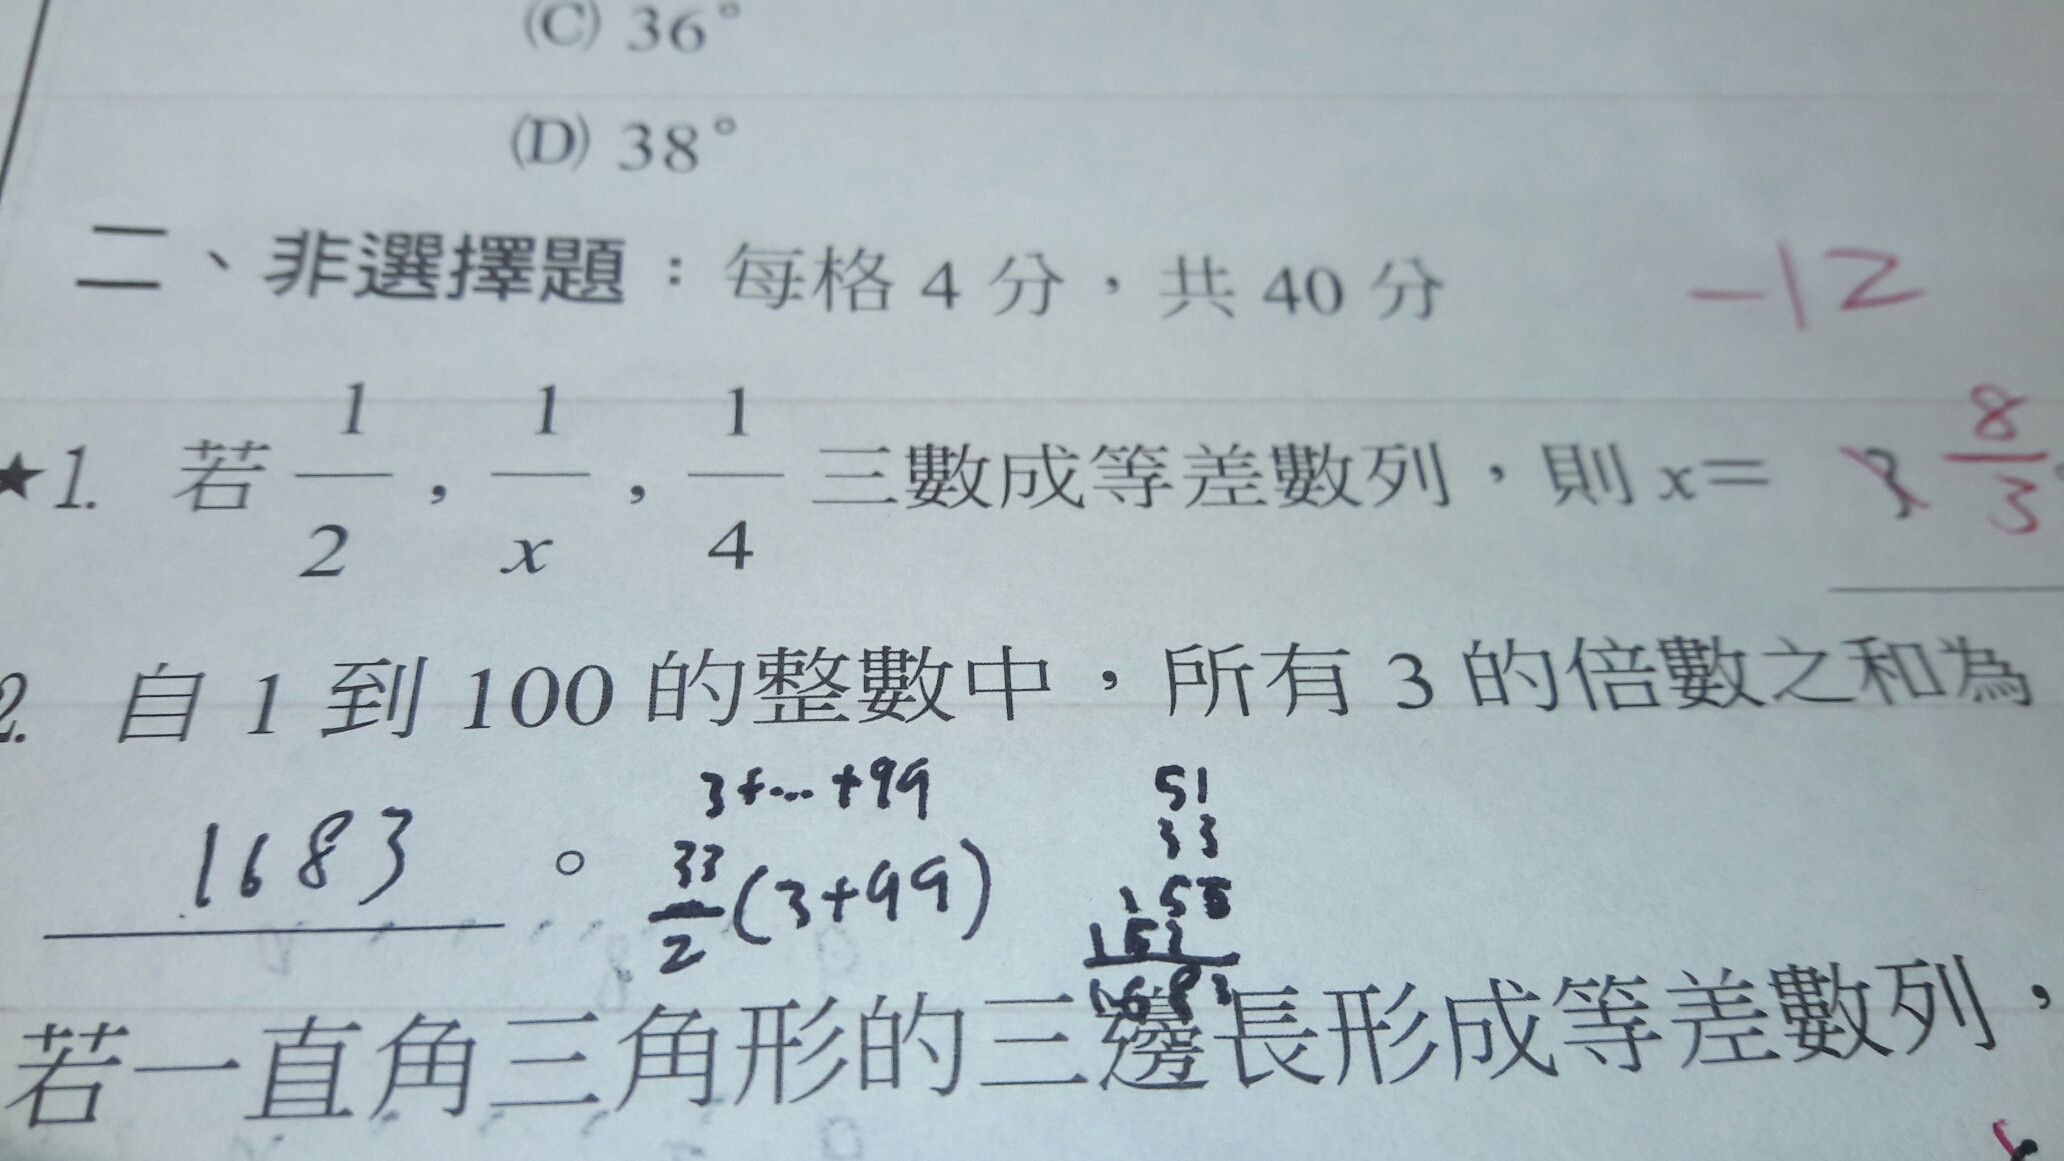 (C) 36°
(D) 38°
二、非選擇題：每格 4 分，共 40 分
-12
★1. 若 1/2，1/x，1/4 三數成等差數列，則 x= 3 8/3
2. 自 1 到 100 的整數中，所有 3 的倍數之和為
1683 。
3+...+99
33/2 (3+99)
51
33
153
153
1683
若一直角三角形的三邊長形成等差數列，